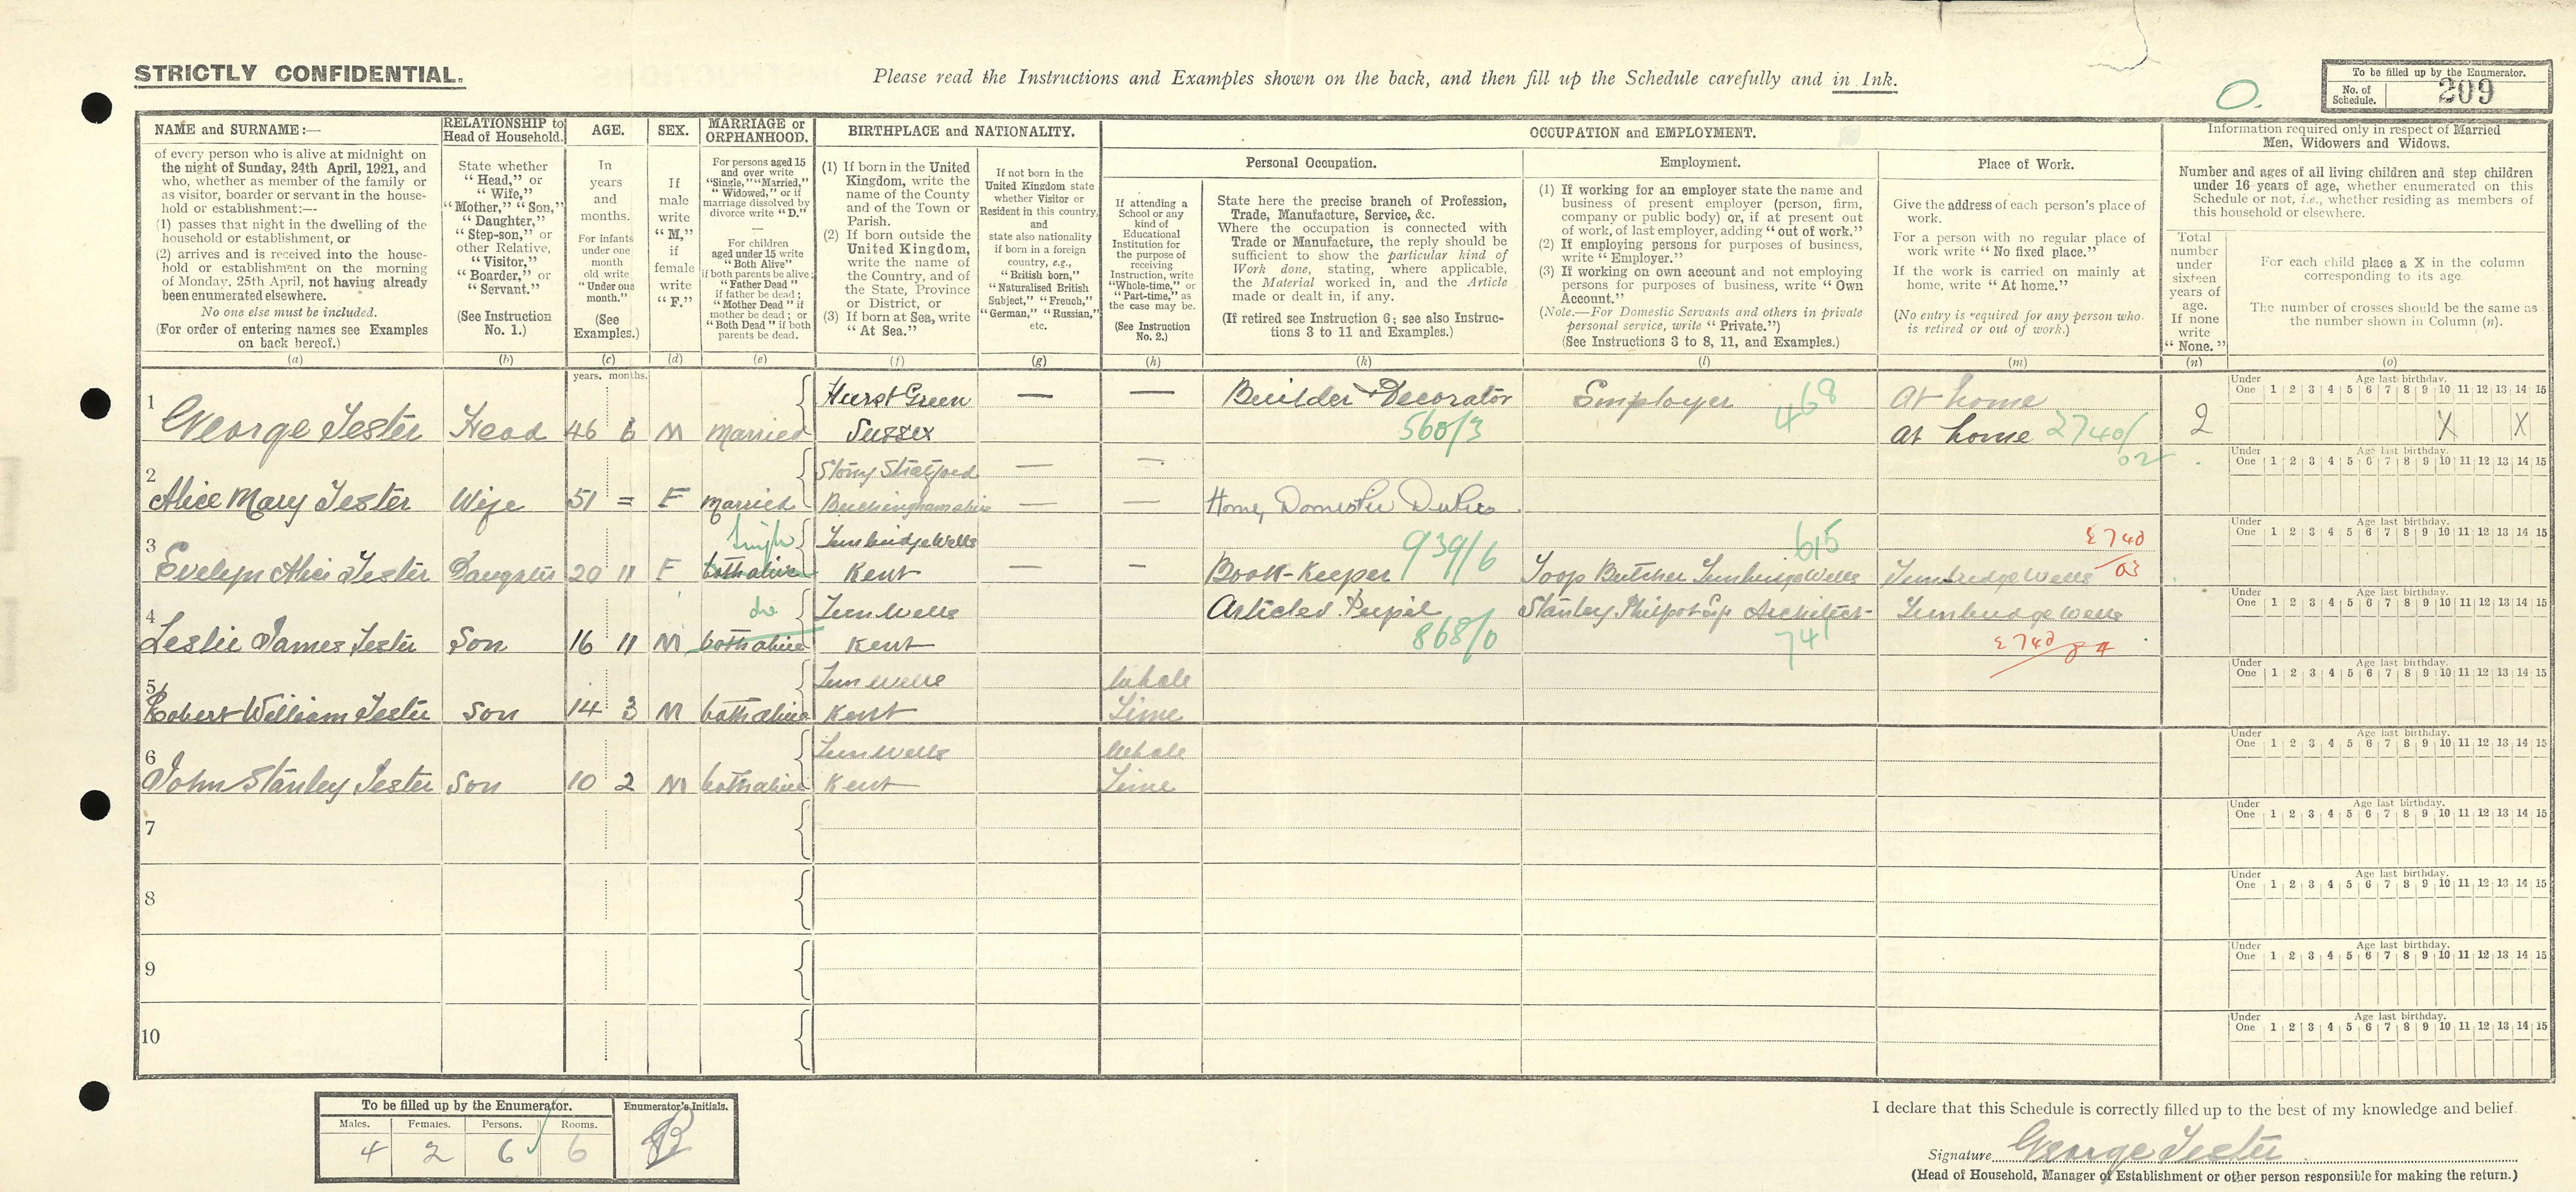 STRICTLY CONFIDENTIAL.
Please read the Instructions and Examples shown on the back, and then fill up the Schedule carefully and in Ink.
O.
To be filled up by the Enumerator.
No. of Schedule. 209
NAME and SURNAME:—
of every person who is alive at midnight on
the night of Sunday, 24th April, 1921, and
who, whether as member of the family or
as visitor, boarder or servant in the house-
hold or establishment:—
(1) passes that night in the dwelling of the
household or establishment, or
(2) arrives and is received into the house-
hold or establishment on the morning
of Monday, 25th April, not having already
been enumerated elsewhere.
No one else must be included.
(For order of entering names see Examples
on back hereof.)
(a)
RELATIONSHIP to
Head of Household.
State whether
"Head," or
"Wife,"
"Mother," "Son,"
"Daughter,"
"Step-son," or
other Relative,
"Visitor,"
"Boarder," or
"Servant."
(See Instruction
No. 1.)
(b)
AGE.
In
years
and
months.
For infants
under one
month
old write
"Under one
month."
(See
Examples.)
(c)
SEX.
If
male
write
"M,"
if
female
write
"F."
(d)
MARRIAGE or
ORPHANHOOD.
For persons aged 15
and over write
"Single," "Married,"
"Widowed," or if
marriage dissolved by
divorce write "D."
—
For children
aged under 15 write
"Both Alive"
if both parents be alive;
"Father Dead"
if father be dead;
"Mother Dead" if
mother be dead; or
"Both Dead" if both
parents be dead.
(e)
BIRTHPLACE and NATIONALITY.
(1) If born in the United
Kingdom, write the
name of the County
and of the Town or
Parish.
(2) If born outside the
United Kingdom,
write the name of
the Country, and of
the State, Province
or District, or
(3) If born at Sea, write
"At Sea."
(f)
If not born in the
United Kingdom state
whether Visitor or
Resident in this country,
and
state also nationality
if born in a foreign
country, e.g.,
"British born,"
"Naturalised British
Subject," "French,"
"German," "Russian,"
etc.
(g)
OCCUPATION and EMPLOYMENT.
If attending a
School or any
kind of
Educational
Institution for
the purpose of
receiving
Instruction, write
"Whole-time," or
"Part-time," as
the case may be.
(See Instruction
No. 2.)
(h)
Personal Occupation.
State here the precise branch of Profession,
Trade, Manufacture, Service, &c.
Where the occupation is connected with
Trade or Manufacture, the reply should be
sufficient to show the particular kind of
Work done, stating, where applicable,
the Material worked in, and the Article
made or dealt in, if any.
(If retired see Instruction 6; see also Instruc-
tions 3 to 11 and Examples.)
(k)
Employment.
(1) If working for an employer state the name and
business of present employer (person, firm,
company or public body) or, if at present out
of work, of last employer, adding "out of work."
(2) If employing persons for purposes of business,
write "Employer."
(3) If working on own account and not employing
persons for purposes of business, write "Own
Account."
(Note.—For Domestic Servants and others in private
personal service, write "Private.")
(See Instructions 3 to 8, 11, and Examples.)
(l)
Place of Work.
Give the address of each person's place of
work.
For a person with no regular place of
work write "No fixed place."
If the work is carried on mainly at
home, write "At home."
(No entry is required for any person who
is retired or out of work.)
(m)
Information required only in respect of Married
Men, Widowers and Widows.
Number and ages of all living children and step children
under 16 years of age, whether enumerated on this
Schedule or not, i.e., whether residing as members of
this household or elsewhere.
Total
number
under
sixteen
years of
age.
If none
write
"None."
(n)
For each child place a X in the column
corresponding to its age.
The number of crosses should be the same as
the number shown in Column (n).
(o)
years. months.
Under One Age last birthday. 1 2 3 4 5 6 7 8 9 10 11 12 13 14 15
1 George Tester Head 46 6 M Married Hurst Green Sussex — — Builder & Decorator 560/3 Employer 468 At home At home 2740/02 2 X X
Under One Age last birthday. 1 2 3 4 5 6 7 8 9 10 11 12 13 14 15
2 Alice Mary Tester Wife 51 = F Married Stony Stratford Buckinghamshire — — — — Home Domestic Duties
Under One Age last birthday. 1 2 3 4 5 6 7 8 9 10 11 12 13 14 15
3 Evelyn Alice Tester Daughter 20 11 F Single both alive Tunbridge Wells Kent — - Book-Keeper 939/6 Butcher Tunbridge Wells 615 Tunbridge Wells
Under One Age last birthday. 1 2 3 4 5 6 7 8 9 10 11 12 13 14 15
4 Leslie James Tester Son 16 11 M do both alive Tun Wells Kent Articled Pupil 868/0 Stanley Philpot Esq Architect 741 Tunbridge Wells
Under One Age last birthday. 1 2 3 4 5 6 7 8 9 10 11 12 13 14 15
5 Robert William Tester Son 14 3 M both alive Tun Wells Kent Whole Time
Under One Age last birthday. 1 2 3 4 5 6 7 8 9 10 11 12 13 14 15
6 John Stanley Tester Son 10 2 M both alive Tun Wells Kent Whole Time
Under One Age last birthday. 1 2 3 4 5 6 7 8 9 10 11 12 13 14 15
7
Under One Age last birthday. 1 2 3 4 5 6 7 8 9 10 11 12 13 14 15
8
Under One Age last birthday. 1 2 3 4 5 6 7 8 9 10 11 12 13 14 15
9
Under One Age last birthday. 1 2 3 4 5 6 7 8 9 10 11 12 13 14 15
10
To be filled up by the Enumerator.
Males. Females. Persons. Rooms.
4 2 6 6
Enumerator's Initials.
I declare that this Schedule is correctly filled up to the best of my knowledge and belief.
Signature George Tester
(Head of Household, Manager of Establishment or other person responsible for making the return.)